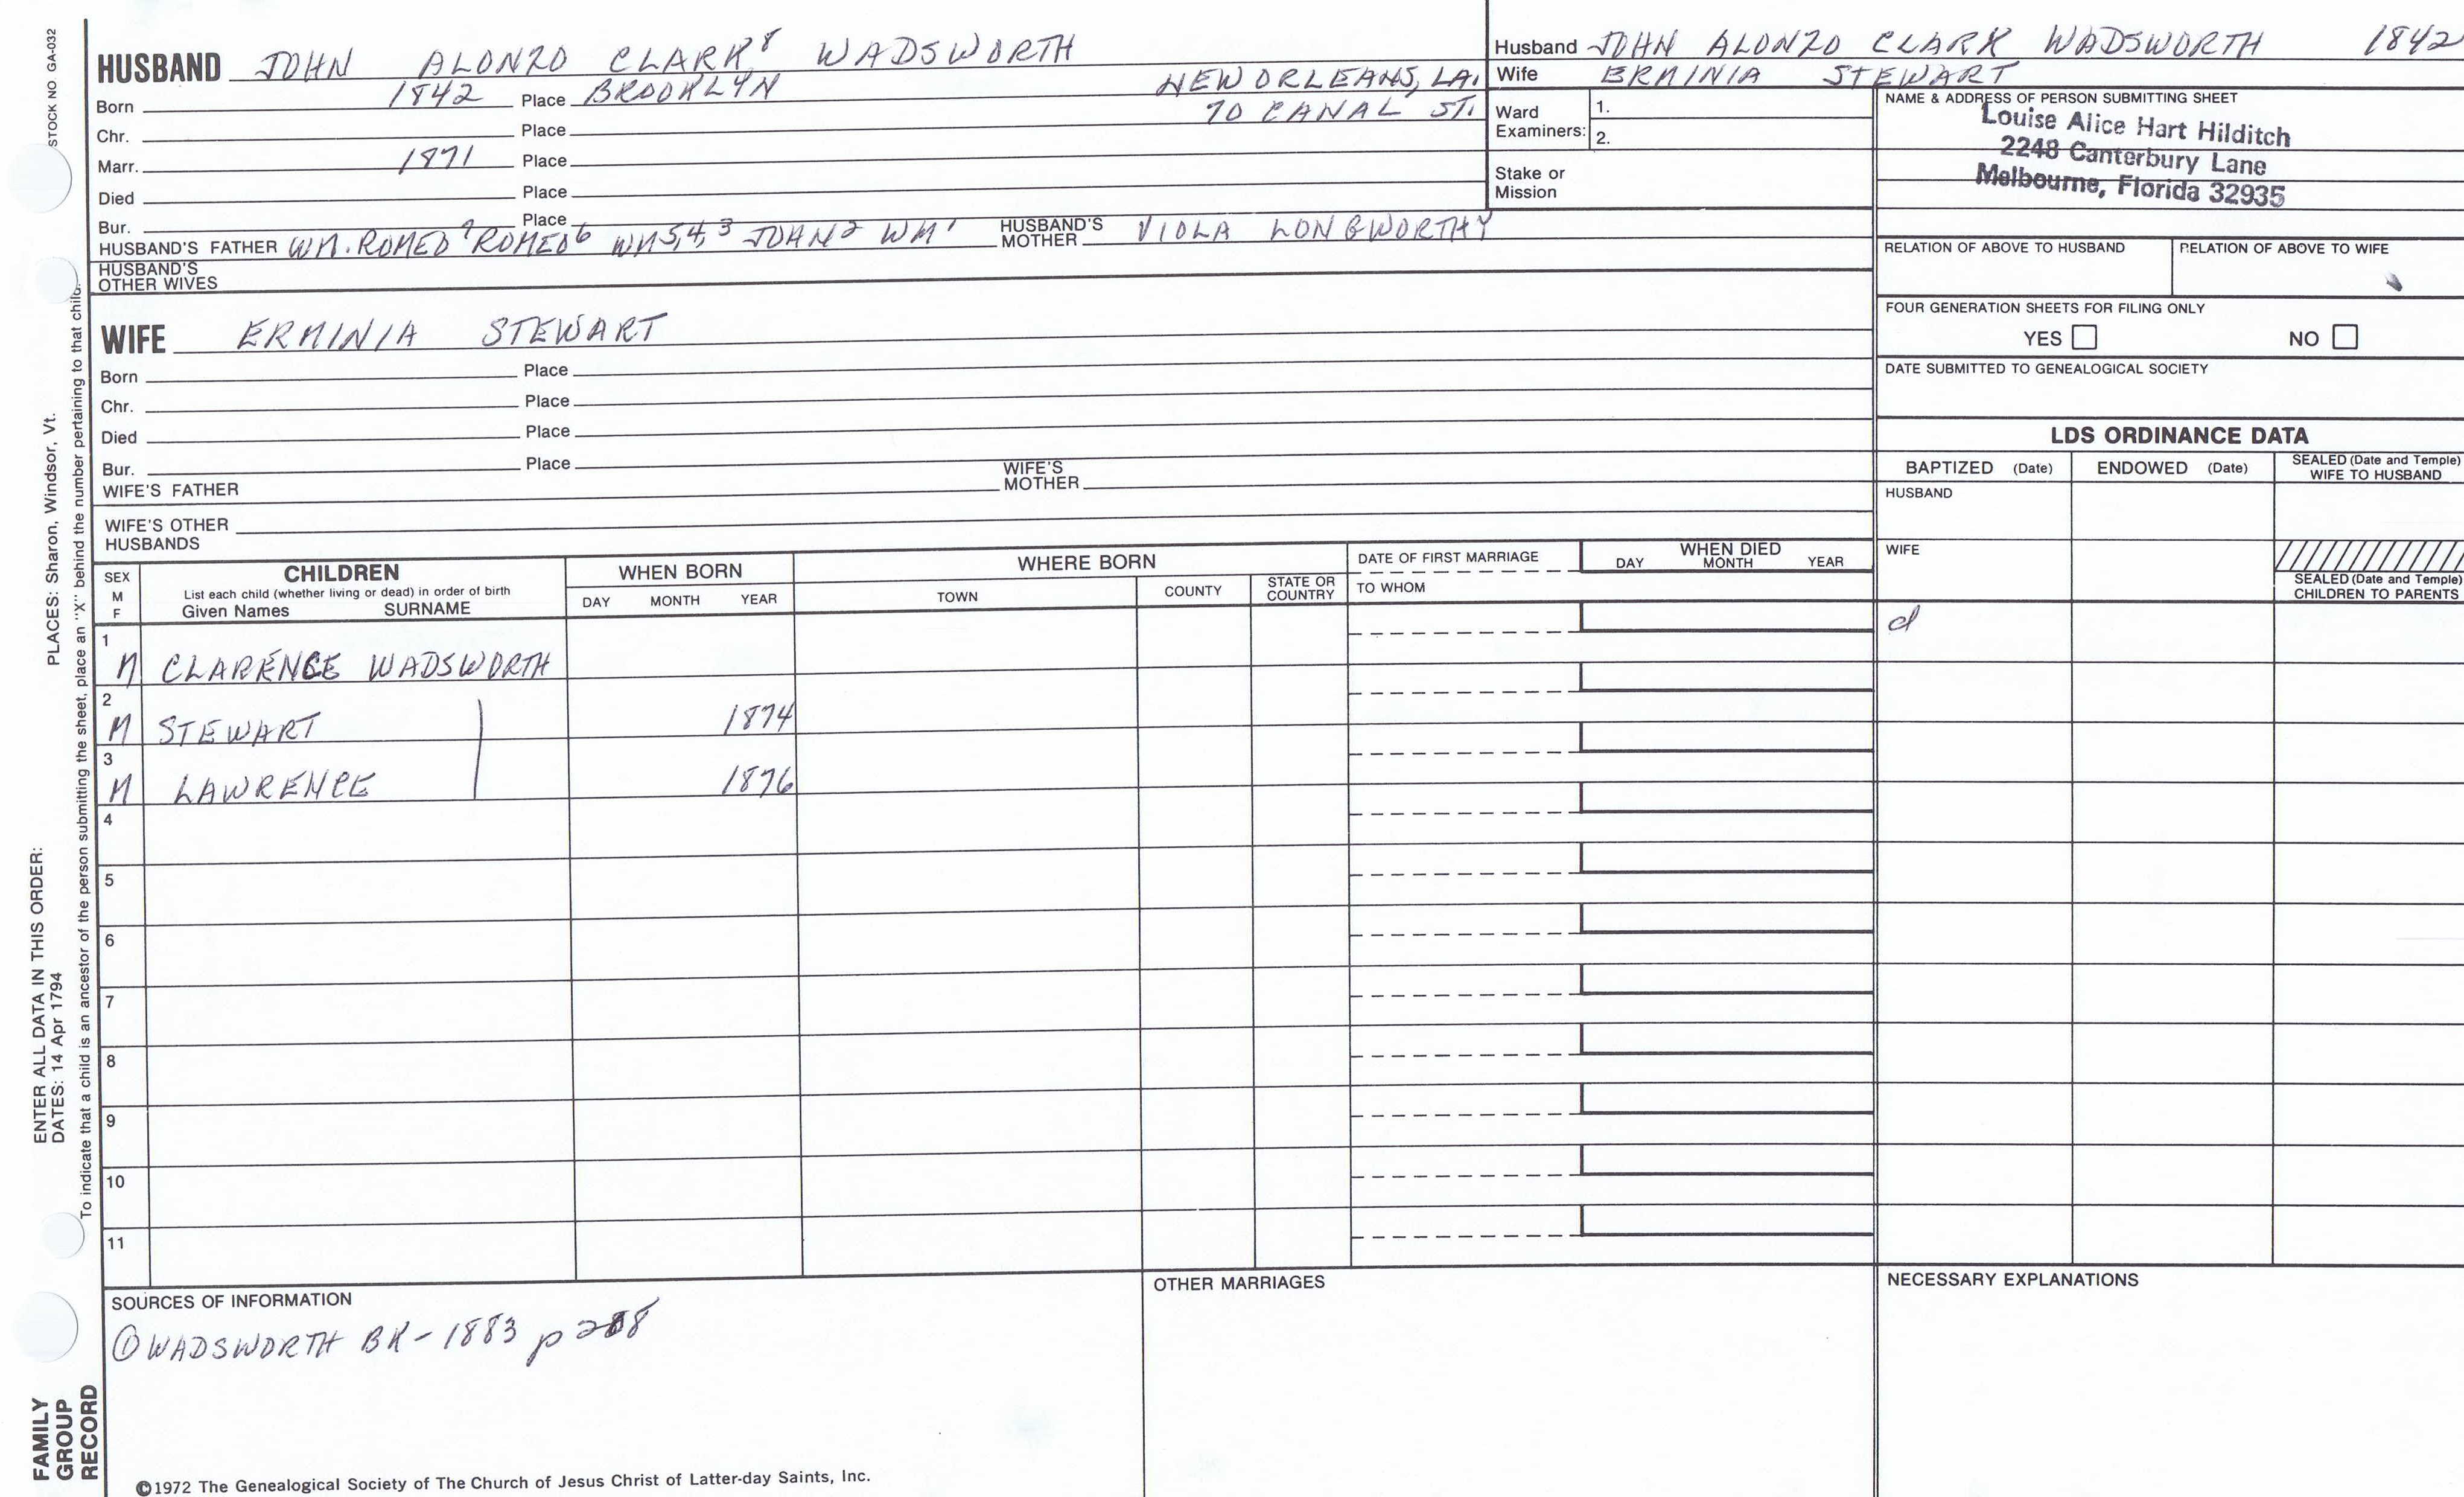 STOCK NO GA-032
HUSBAND JOHN ALONZO CLARK⁸ WADSWORTH
Born 1842 Place BROOKLYN NEW ORLEANS, LA.
70 CANAL ST.
Chr. Place
Marr. 1871 Place
Died Place
Bur. Place
HUSBAND'S FATHER WM. ROMEO⁷ ROMEO⁶ WM⁵,⁴,³ JOHN² WM¹ HUSBAND'S MOTHER VIOLA LONGWORTHY
HUSBAND'S OTHER WIVES
WIFE ERMINIA STEWART
Born Place
Chr. Place
Died Place
Bur. Place
WIFE'S FATHER WIFE'S MOTHER
WIFE'S OTHER HUSBANDS
Husband JOHN ALONZO CLARK WADSWORTH 1842
Wife ERMINIA STEWART
Ward Examiners: 1.
2.
Stake or Mission
NAME & ADDRESS OF PERSON SUBMITTING SHEET
Louise Alice Hart Hilditch
2248 Canterbury Lane
Melbourne, Florida 32935
RELATION OF ABOVE TO HUSBAND RELATION OF ABOVE TO WIFE
FOUR GENERATION SHEETS FOR FILING ONLY
YES NO
DATE SUBMITTED TO GENEALOGICAL SOCIETY
LDS ORDINANCE DATA
BAPTIZED (Date) ENDOWED (Date) SEALED (Date and Temple) WIFE TO HUSBAND
HUSBAND
WIFE
SEALED (Date and Temple) CHILDREN TO PARENTS
SEX M F CHILDREN WHEN BORN WHERE BORN DATE OF FIRST MARRIAGE WHEN DIED
List each child (whether living or dead) in order of birth
Given Names SURNAME DAY MONTH YEAR TOWN COUNTY STATE OR COUNTRY TO WHOM DAY MONTH YEAR
1 M CLARENCE WADSWORTH d
2 M STEWART 1874
3 M LAWRENCE 1876
4
5
6
7
8
9
10
11
SOURCES OF INFORMATION OTHER MARRIAGES NECESSARY EXPLANATIONS
① WADSWORTH BK - 1883 p
©1972 The Genealogical Society of The Church of Jesus Christ of Latter-day Saints, Inc.
FAMILY GROUP RECORD
ENTER ALL DATA IN THIS ORDER:
DATES: 14 Apr 1794
PLACES: Sharon, Windsor, Vt.
To indicate that a child is an ancestor of the person submitting the sheet, place an "X" behind the number pertaining to that child.